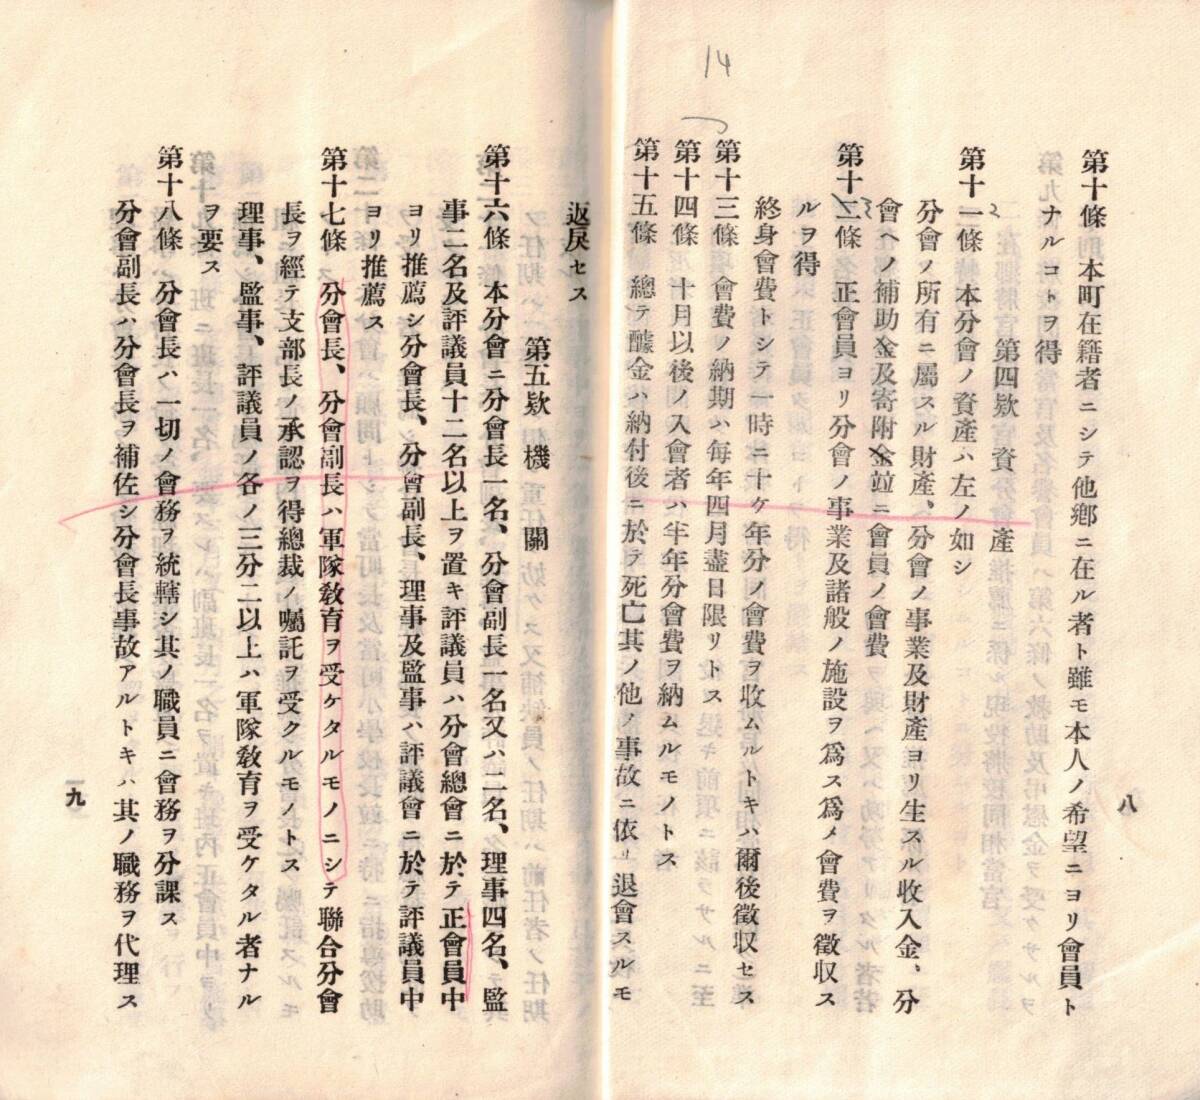 14
八
第十條　本町在籍者ニシテ他鄕ニ在ル者ト雖モ本人ノ希望ニヨリ會員ト
ナルコトヲ得
第四欵　資　產
第十一條　本分會ノ資產ハ左ノ如シ
2
分會ノ所有ニ屬スル財產、分會ノ事業及財產ヨリ生スル收入金、分
會ヘノ補助金及寄附金竝ニ會員ノ會費
第十二條　正會員ヨリ分會ノ事業及諸般ノ施設ヲ爲ス爲メ會費ヲ徵收ス
3
ルヲ得
終身會費トシテ一時ニ十ケ年分ノ會費ヲ收ムルトキハ爾後徵收セス
第十三條　會費ノ納期ハ每年四月盡日限リトス
第十四條　十月以後ノ入會者ハ半年分會費ヲ納ムルモノトス
第十五條　總テ醵金ハ納付後ニ於テ死亡其ノ他ノ事故ニ依リ退會スルモ
返戾セス
第五欵　機　關
第十六條　本分會ニ分會長一名、分會副長一名又ハ二名、理事四名、監
事二名及評議員十二名以上ヲ置キ評議員ハ分會總會ニ於テ正會員中
ヨリ推薦シ分會長、分會副長、理事及監事ハ評議會ニ於テ評議員中
ヨリ推薦ス
第十七條　分會長、分會副長ハ軍隊敎育ヲ受ケタルモノニシテ聯合分會
長ヲ經テ支部長ノ承認ヲ得總裁ノ囑託ヲ受クルモノトス
理事、監事、評議員ノ各ノ三分二以上ハ軍隊敎育ヲ受ケタル者ナル
ヲ要ス
第十八條　分會長ハ一切ノ會務ヲ統轄シ其ノ職員ニ會務ヲ分課ス
分會副長ハ分會長ヲ補佐シ分會長事故アルトキハ其ノ職務ヲ代理ス
九